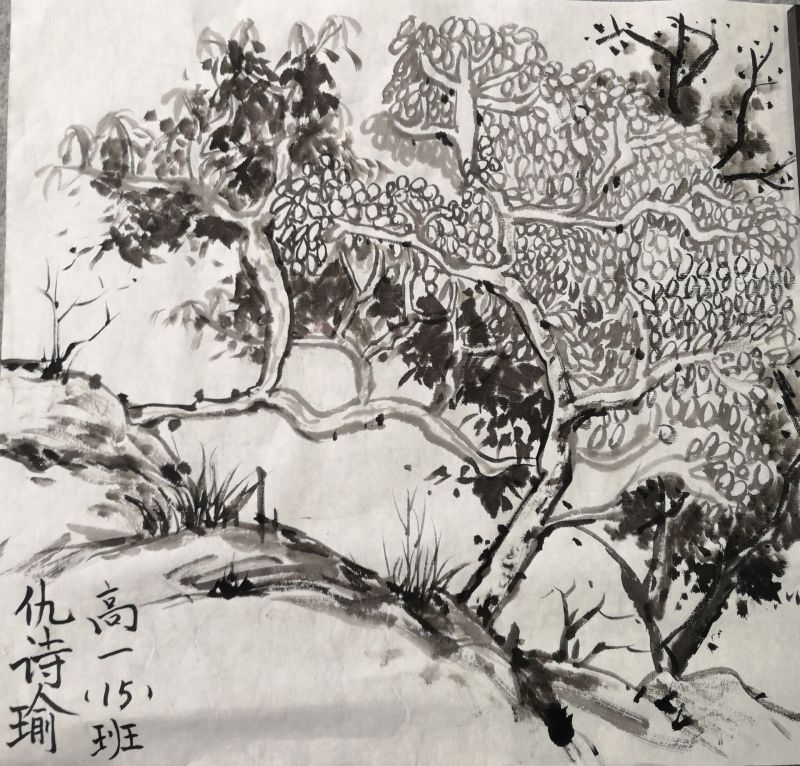 高一（15）班
仇诗瑜